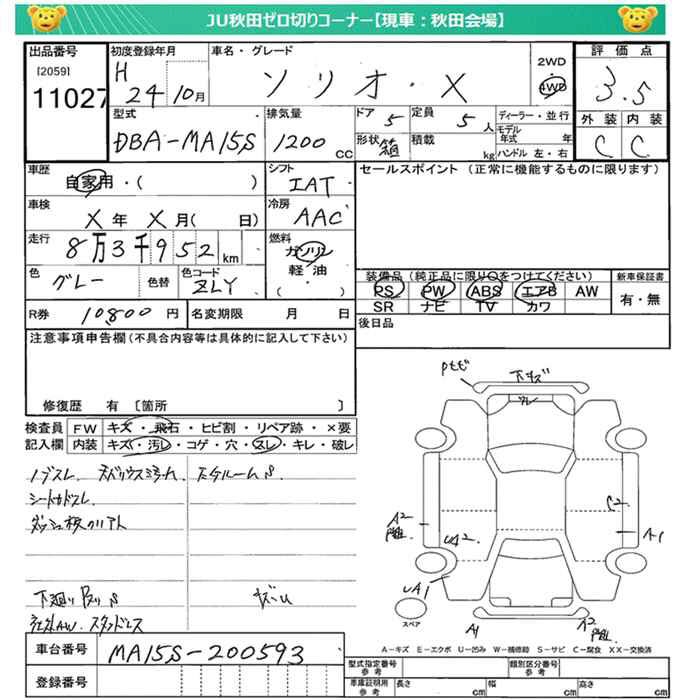 JU秋田ゼロ切りコーナー【現車：秋田会場】
出品番号
[2059]
11027
初度登録年月
H 24 10月
車名・グレード
ソリオ・X
2WD
4WD
評価点
3.5
外装 内装
C C
型式
DBA-MA15S
排気量
1200 cc
ドア 5
定員 5人
形状 箱
積載 kg
ディーラー・並行
モデル年式 年
ハンドル 左・右
車歴
自家用・( )
シフト
IAT
セールスポイント (正常に機能するものに限ります)
車検
X年 X月( 日)
冷房
AAC
走行
8万3千952km
燃料
ガソリン
軽油
( )
色
グレー
色替
色コード
ZLY
装備品 (純正品に限り○をつけてください)
PS PW ABS エアB AW
SR ナビ TV カワ
新車保証書
有・無
R券 10800円
名変期限 月 日
後日品
注意事項申告欄(不具合内容等は具体的に記入して下さい)
修復歴 有 [箇所 ]
検査員記入欄
FW キズ・飛石・ヒビ割・リペア跡・×要
内装 キズ・汚レ・コゲ・穴・スレ・キレ・破レ
下廻り
スタッドレス
下キズ
A2
C2
A1
UA2
UA1
スペア
A1
A2
A-キズ E-エクボ U-凹み W-補修跡 S-サビ C-腐食 XX-交換済
車台番号
MA15S-200593
登録番号
型式指定番号 参考
類別区分番号 参考
車庫証明用 参考
長さ cm
幅 cm
高さ cm